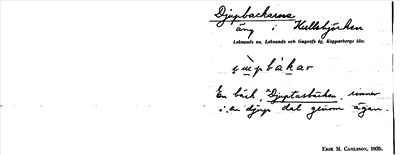 Djupbackarna
äng i Kullsbjörken
Leksands sn, Leksands och Gagnefs tg, Kopparbergs län.
En bäck, Djuptasbäcken, rinner
i en djup dal genom ägan.
ERIK M. CARLSSON, 1935.